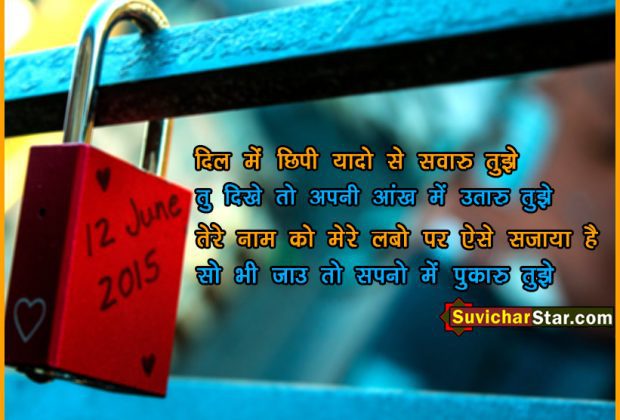 12 June
2015
दिल में छिपी यादो से सवारु तुझे
तु दिखे तो अपनी आंख में उतारु तुझे
तेरे नाम को मेरे लबो पर ऐसे सजाया है
सो भी जाउ तो सपनो में पुकारु तुझे
SuvicharStar.com